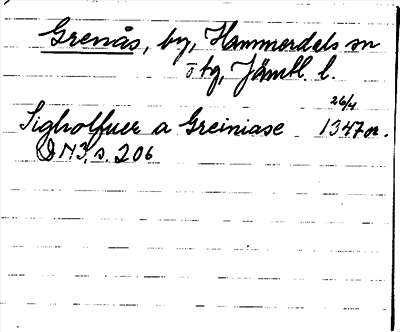 Grenås, by, Hammerdals sn
o tg, Jämtl. l.
Sigholfuer a Greiniase 26/4 1347 or.
DN3, s. 206